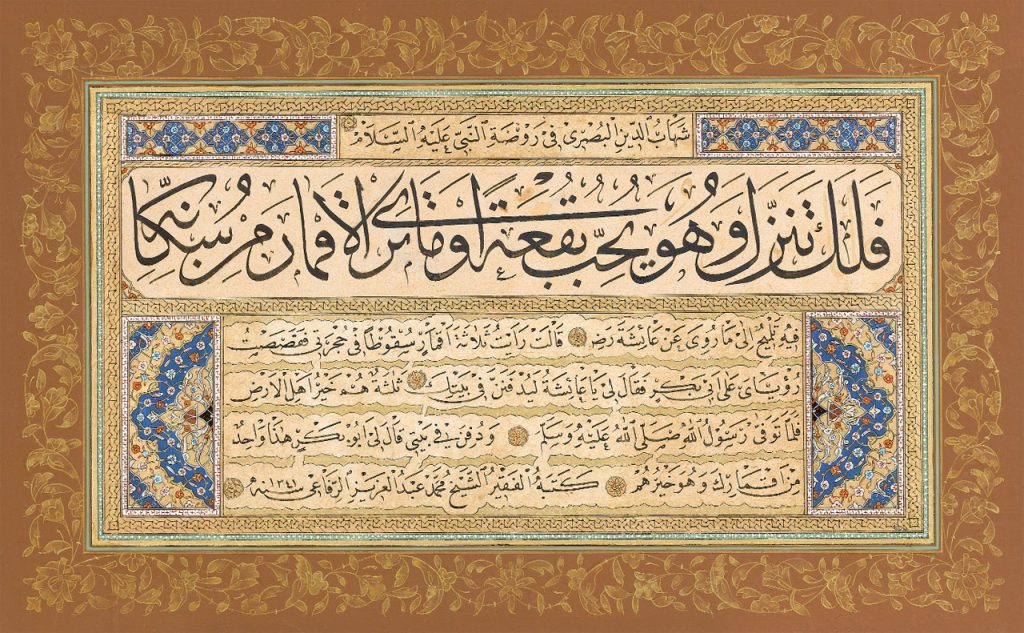 شهاب الدين البصرى فى روضة النبى عليه السلام
فلك تنزل وهو يحسب بقعة اوما ترى الاقمار من سكانها
فيه تلميح الى ما روى عن عائشة رض قالت رأيت ثلاثة اقمار سقوطا فى حجرتى فقصصت
رؤياى على ابى بكر فقال لى يا عائشة ليدفنن فى بيتك ثلثة هم خير اهل الارض
فلما توفى رسول الله صلى الله عليه وسلم ودفن فى بيتى قال لى ابو بكر هذا واحد
من اقمارك وهو خيرهم كتبه الفقير الشيخ محمد عبد العزيز الرفاعى سنه ١٣٤١